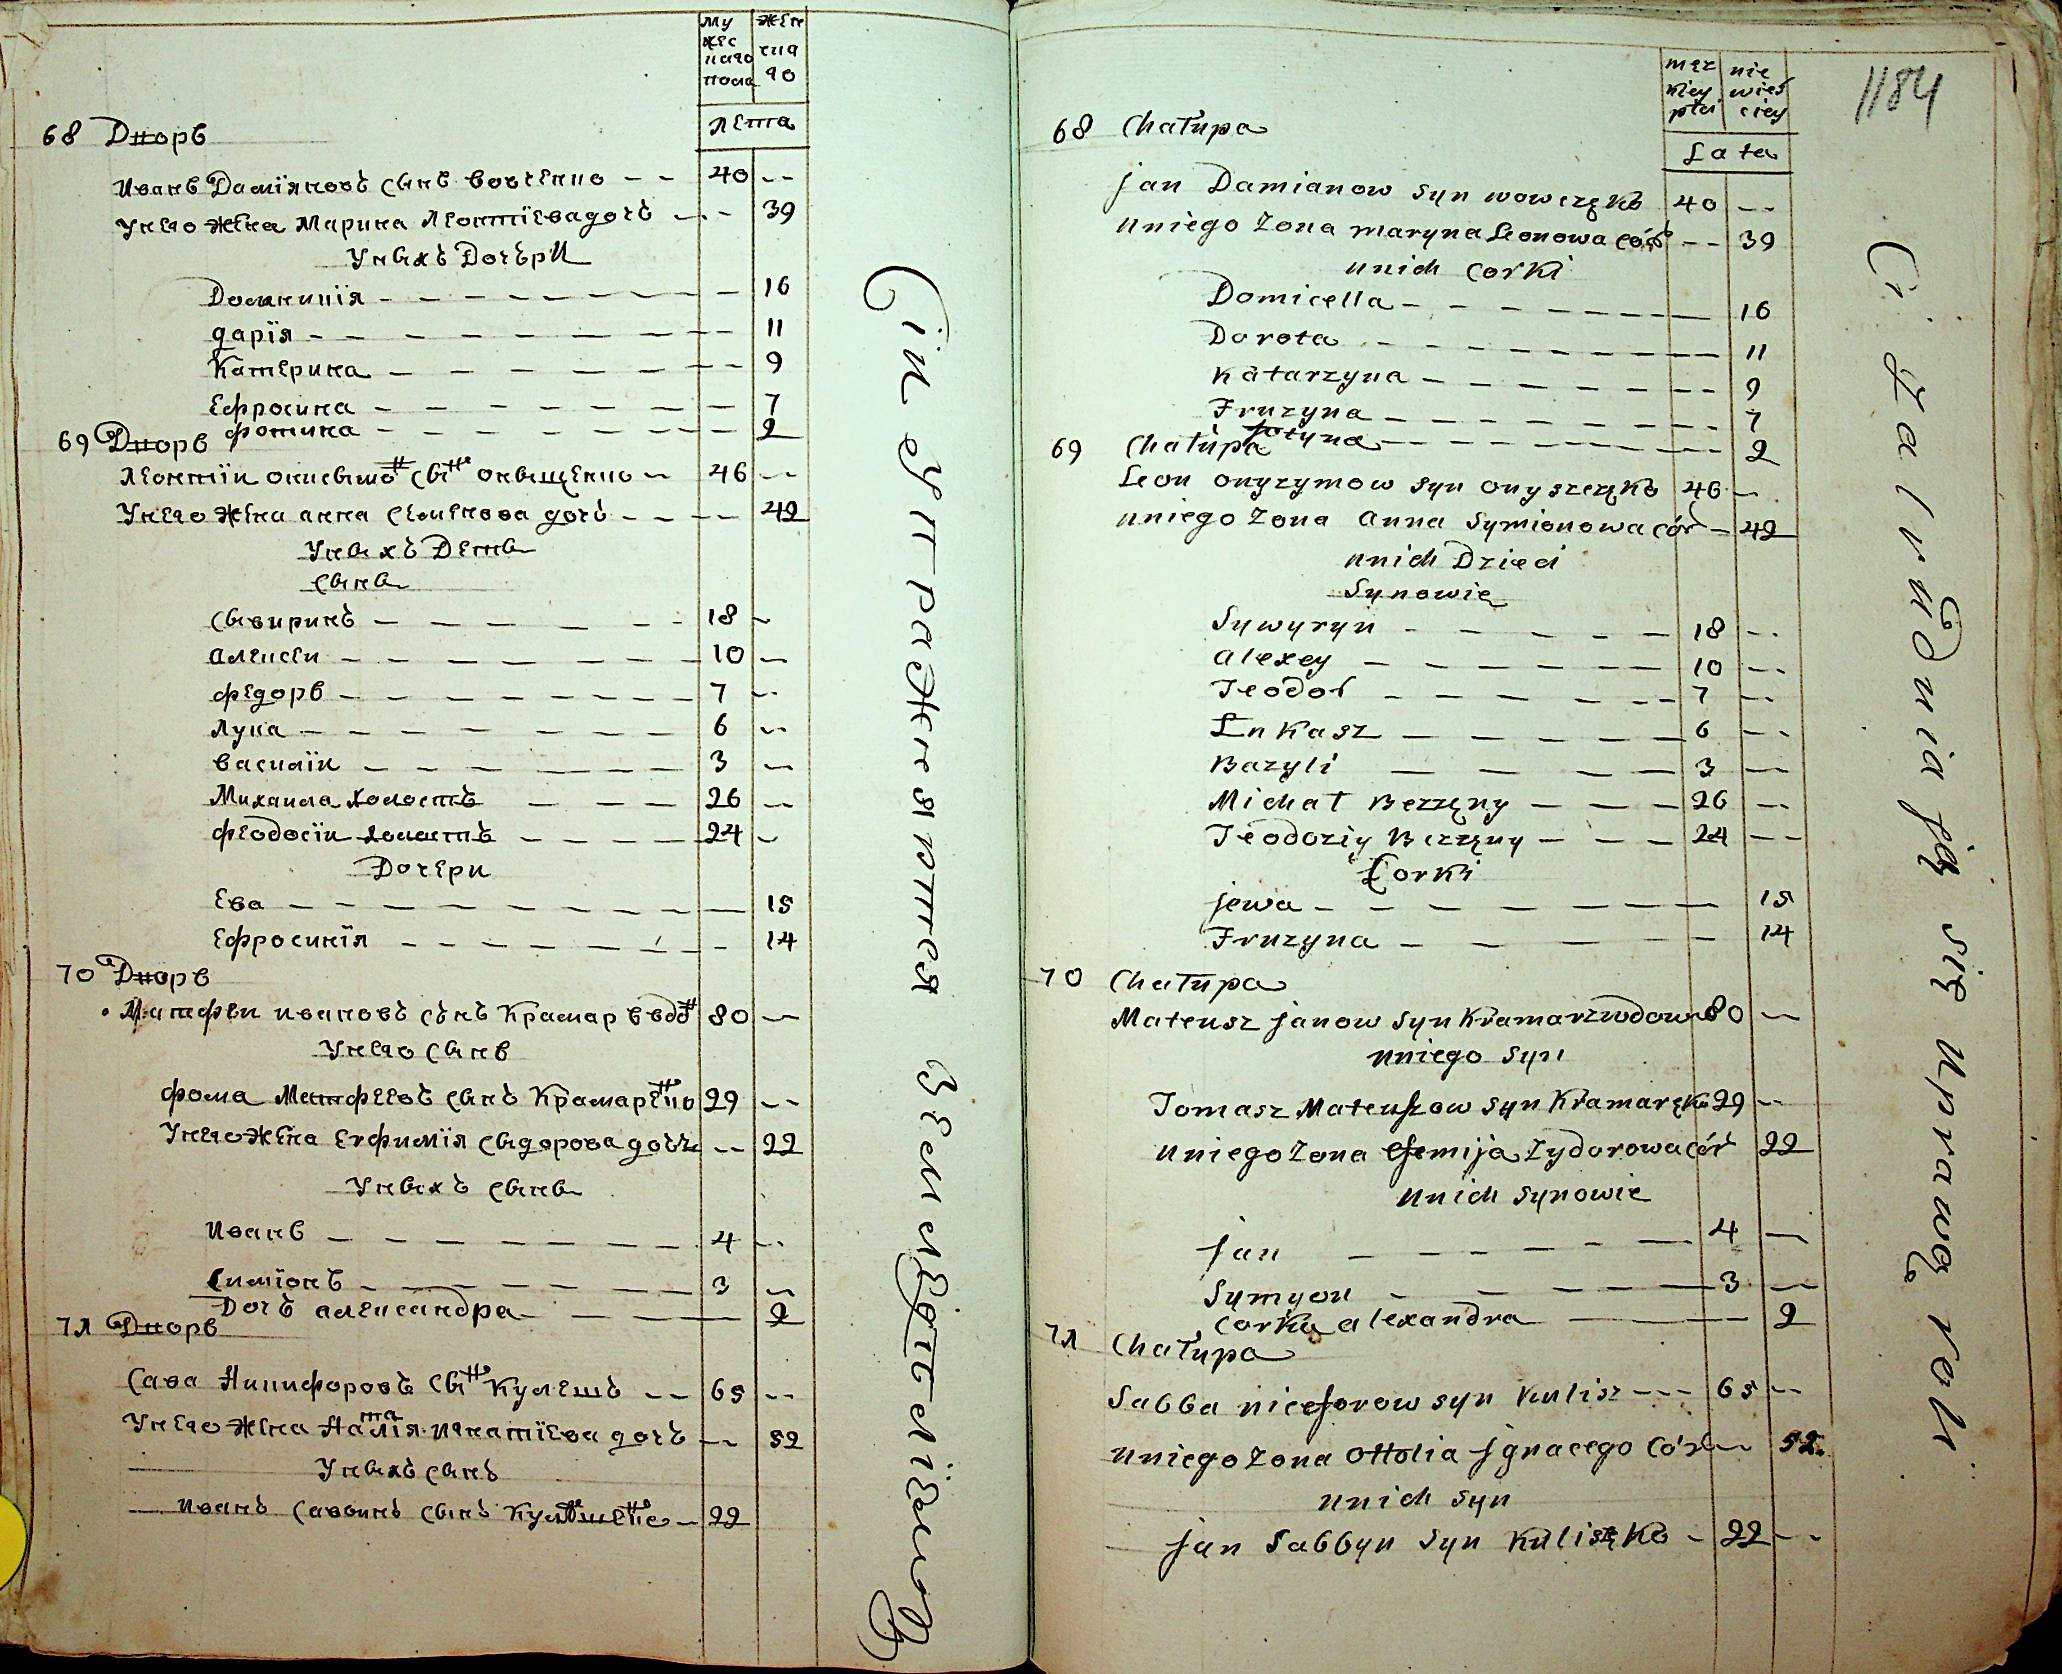 му
жес
каго
пола
жен
ска
го
лета
68 Дворъ
Иванъ Даміяновъ сынъ вовченко 40
У него жена Марина Леонтіева дочъ 39
У ныхъ Дочъри
Домникія 16
дарія 11
Катерина 9
Ефросина 7
фотина 2
69 Дворъ
Леонтіи онисымовъ сынъ онищенко 46
У него жена анна семенова дочъ 42
У ныхъ Дети
сыны
сывиринъ 18
алексеи 10
федоръ 7
лука 6
василіи 3
Михаила холостъ 26
феодосіи холостъ 24
Дочери
Ева 15
Ефросинія 14
70 Дворъ
Матфеи ивановъ сынъ Крамар вдов 80
У него сынъ
фома Матфеевъ сынъ Крамаренко 29
У него жена евфимія сыдорова дочъ 22
У ныхъ сыны
Иванъ 4
симіонъ 3
Дочъ александра 2
71 Дворъ
Сава Никифоровъ сынъ Кулешъ 65
У него жена Наталія игнатіева дочъ 52
У ныхъ сынъ
иванъ савинъ сынъ Кулешенко 22
Сіи упражняются в земледѣліи
1184
męz
kiey
płci
nie
wieś
ciey
Lata
68 Chałupa
jan Damianow syn wowczęko 40
uniego żona maryna Leonowa cór 39
unich corki
Domicella 16
Dorota 11
Katarzyna 9
Fruzyna 7
fotyna 2
69 Chałupa
Leon onyzymow syn onyszczęko 46
uniego żona anna Symionowa cór 42
unich Dzieci
Synowie
Sywyryn 18
alexey 10
Teodor 7
Łukasz 6
Bazyli 3
Michał Bezzęny 26
Teodoziy Bezzęny 24
Corki
jewa 15
Fruzyna 14
70 Chałupa
Mateusz janow syn Kramarz wdow 80
uniego syn
Tomasz Mateuszow syn Kramaręko 29
uniego żona efemija Zydorowa cór 22
unich synowie
jan 4
Symyon 3
corka alexandra 2
71 Chałupa
Sabba niceforow syn Kulisz 65
uniego żona ottolia jgnacego Cór 52
unich syn
jan Sabbyn syn Kuliszęko 22
Ci Zatrudniają się uprawą roli